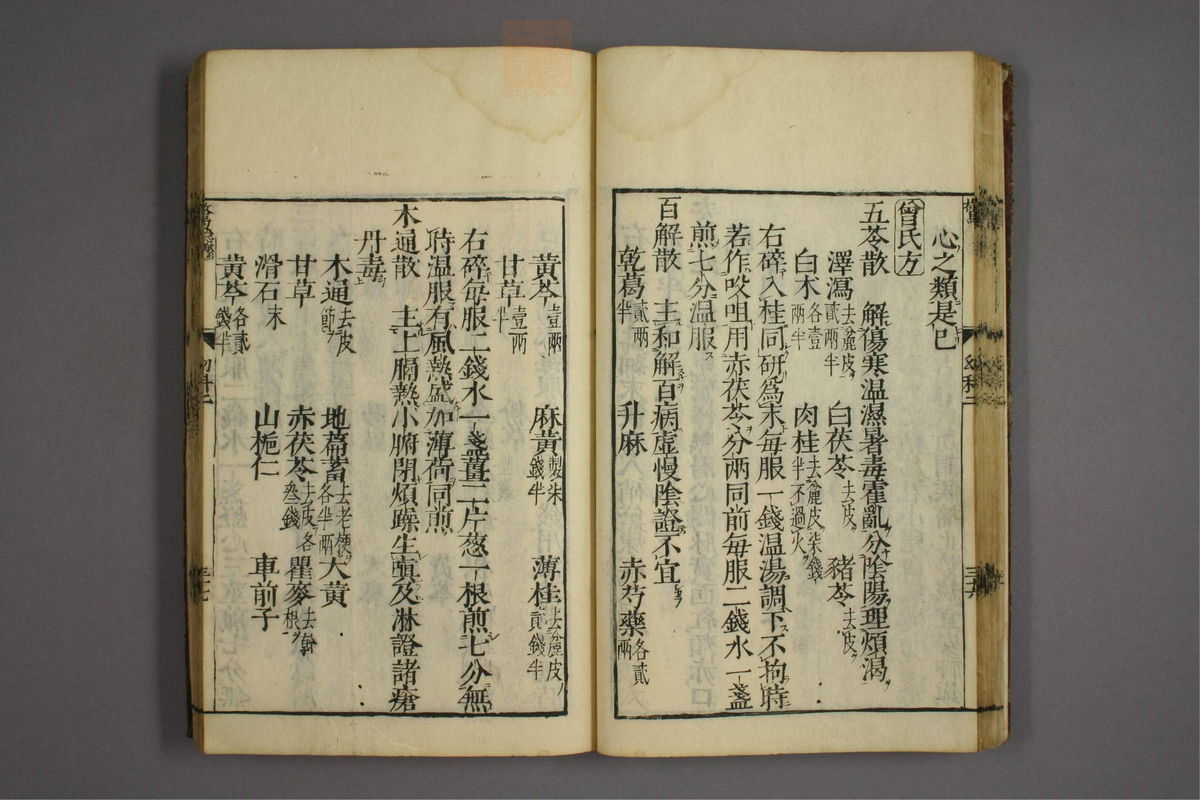 心之類是巳
曾氏方
五苓散 解傷寒温濕暑毒霍亂分陰陽理煩渴
澤瀉去麄皮貳兩半 白茯苓去皮 豬苓去皮
白朮各壹兩半 肉桂去麄皮柒錢半不過火
右碎入桂同研為末每服一錢温湯調下不拘時
若作㕮咀用赤茯苓分兩同前每服二錢水一盞
煎七分温服
百解散 主和解百病虛慢陰證不宜
乾葛貳兩半 升麻 赤芍藥各貳兩
幼科二
黃芩壹兩 麻黃製柒錢半 薄桂去麄皮貳錢半
甘草壹兩
右碎每服二錢水一盞薑二片葱一根煎七分無
時温服有風熱盛加薄荷同煎
木通散 主上膈熱小腑閉煩躁生嗔及淋證諸瘡
丹毒
木通去皮節 地萹蓄去老梗各半兩 大黃
甘草 赤茯苓去皮各叁錢 瞿麥去幹根
滑石末 山梔仁 車前子
黃芩各貳錢半
幼科二